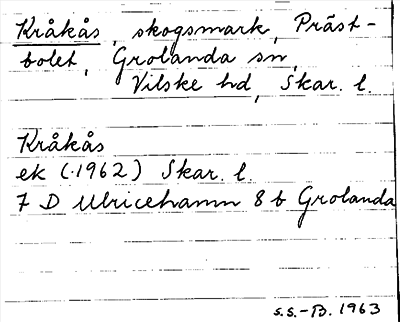 Kråkås, skogsmark, Präst-
bolet, Grolanda sn,
Vilske hd, Skar. l.
Kråkås
ek (1962) Skar. l.
7 D Ulricehamn 8 b Grolanda
s.s.-B. 1963